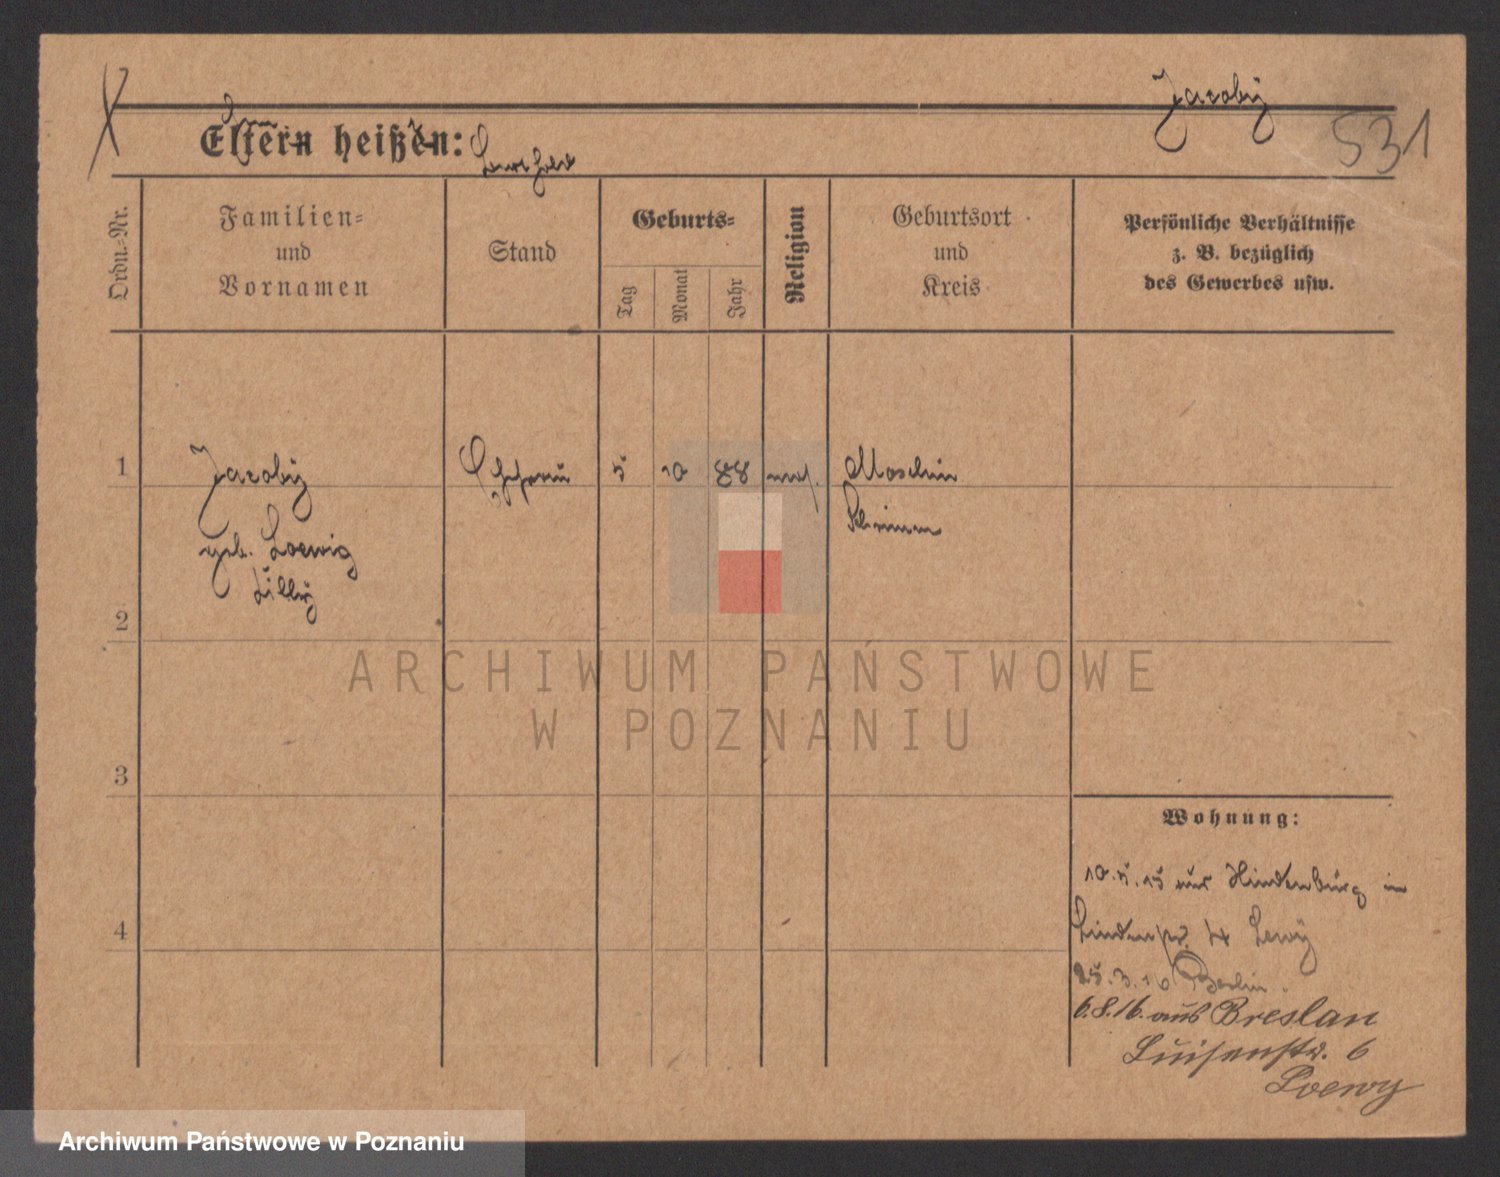 Jacoby
531
Eltern heißen:
Ordn.=Nr.
Familien=
und
Vornamen
Stand
Geburts=
Tag
Monat
Jahr
Religion
Geburtsort
und
Kreis
Persönliche Verhältnisse
z. B. bezüglich
des Gewerbes usw.
1
Jacoby
geb. Loewig
Lilly
Ehefrau
5
10
88
mos.
Moschin
Schrimm
2
ARCHIWUM PAŃSTWOWE
W POZNANIU
3
Wohnung:
10.5.15 aus Hindenburg in
Lindenstr. 4 Lewy
25.3.16 Berlin.
6.8.16. aus Breslau
Luisenstr. 6
Loewy
4
Archiwum Państwowe w Poznaniu